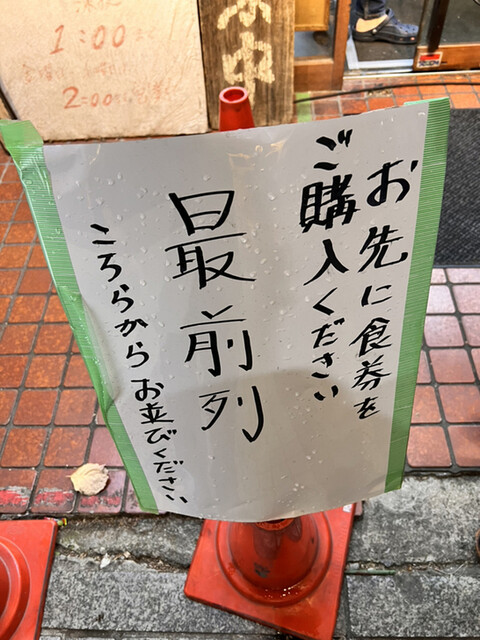 お先に食券を
ご購入ください
最前列
こちらからお並びください
1:00
2:00
中